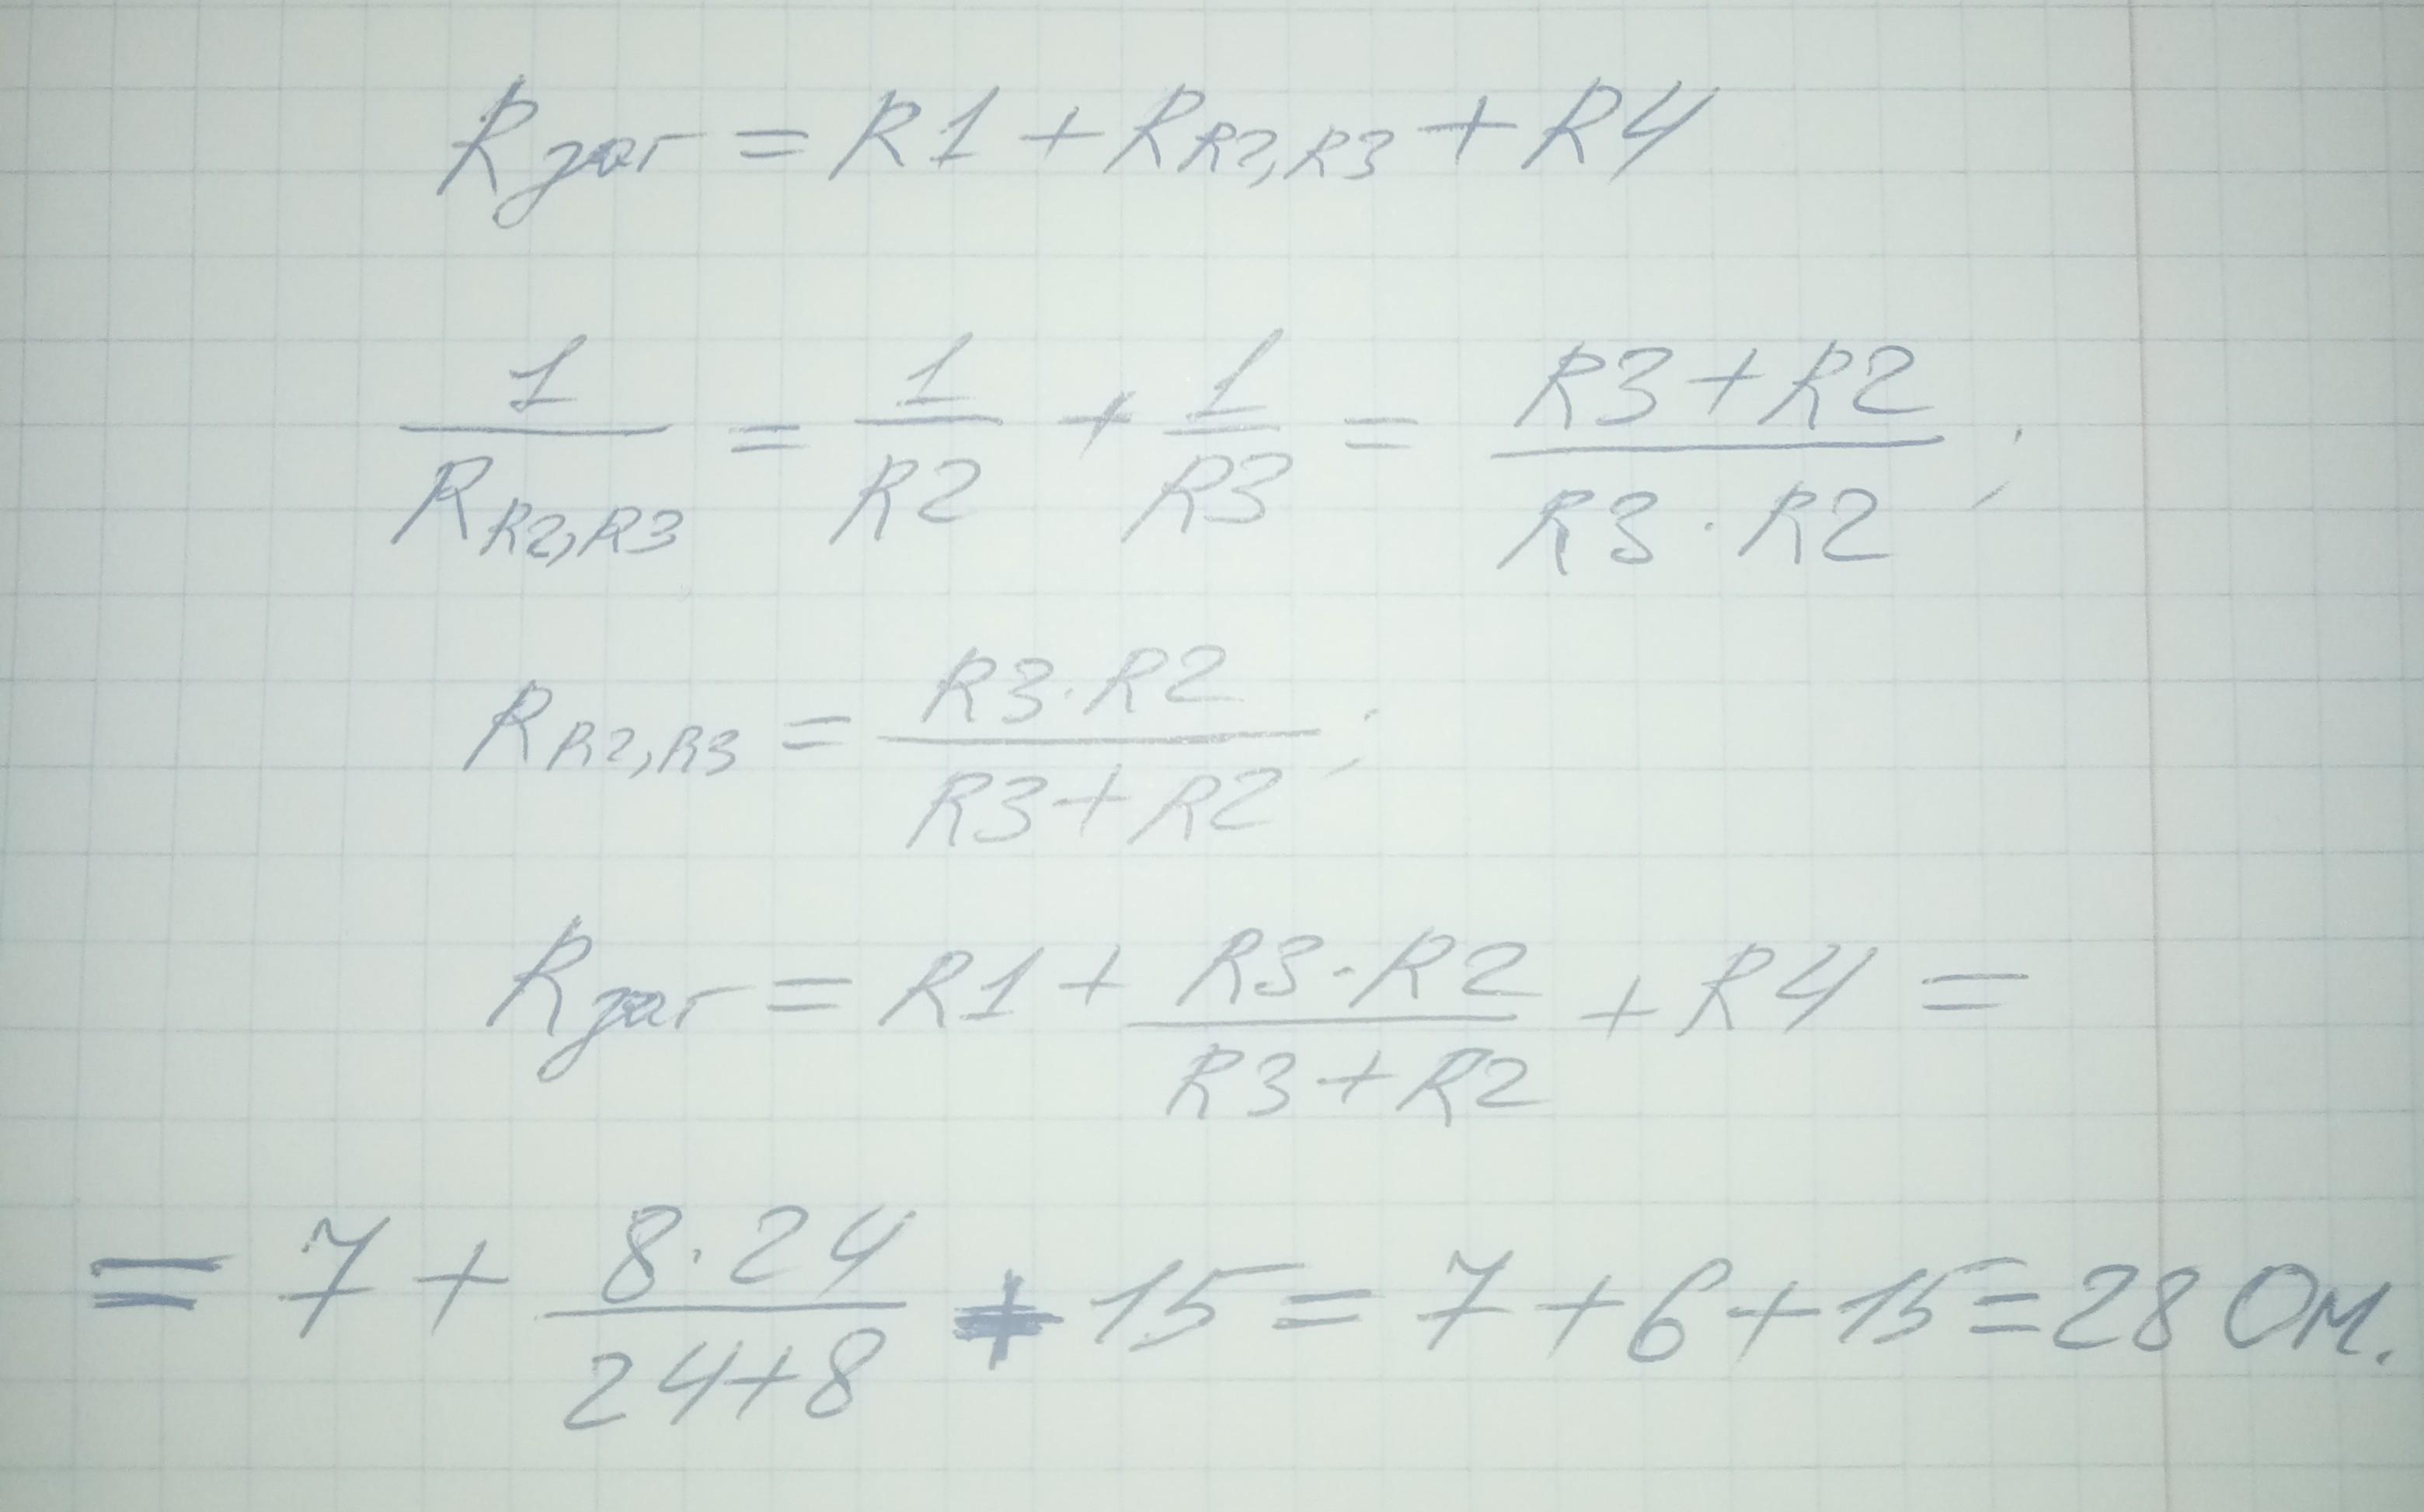 Rзаг = R1 + R R2,R3 + R4
1/R R2,R3 = 1/R2 + 1/R3 = (R3+R2)/(R3·R2);
R R2,R3 = (R3·R2)/(R3+R2);
Rзаг = R1 + (R3·R2)/(R3+R2) + R4 =
= 7 + (8·24)/(24+8) + 15 = 7+6+15=28 Ом.